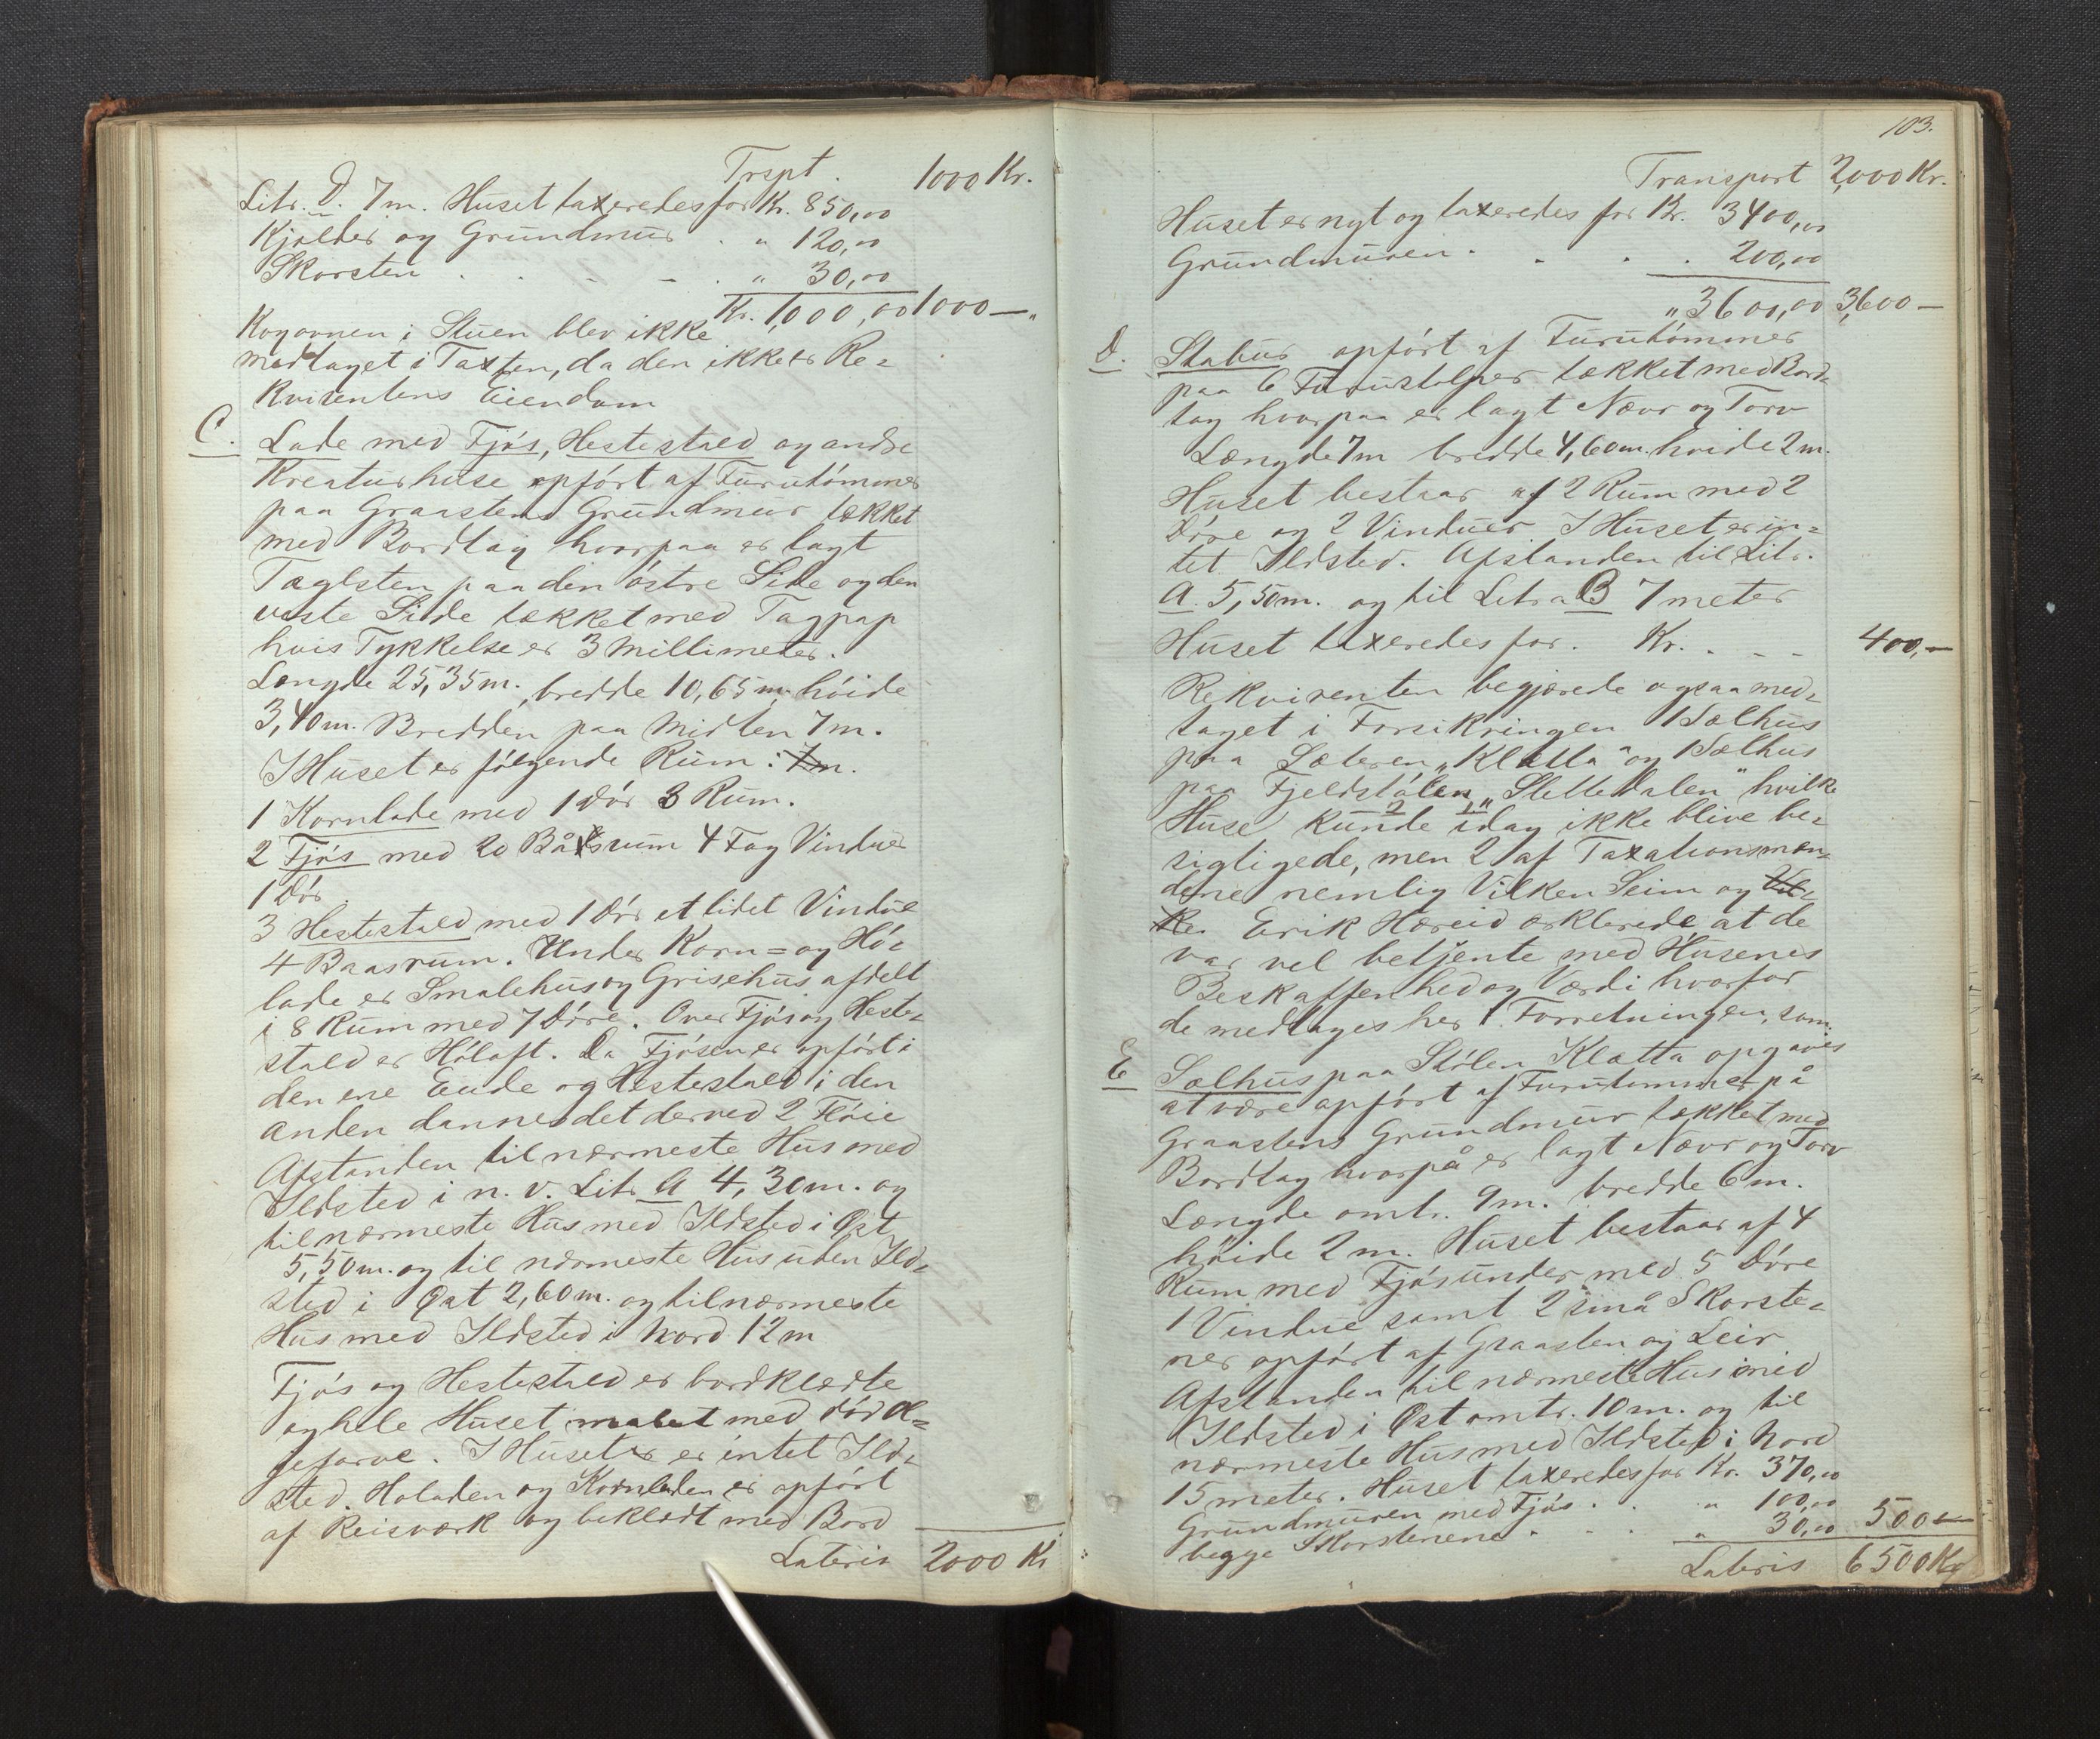 Trspt. 1000 Kr.
Litr. D. 7m. Huset taxeredes for Kr. 850,00
Kjelder og Grundmur . " 120,00
Skorsten . . - - . " 30,00
Kr. 1000,00 1000 — "
Kogovnen i Stuen blev ikke
medtaget i Taxten, da den ikke er Re-
kvirentens Eiendom
C. Lade med Fjøs, Hestestald og andre
Kreaturhuse opført af Furutømmer
paa Graastens Grundmur tækket
med Bordtag hvorpaa er lagt
Taglsten paa den østre Side og den
veste Side tækket med Tagpap
hvis Tykkelse er 3 Millimeter.
Længde 25,35m. bredde 10,65m. høide
3,40m. Bredden paa Midten 7m.
I Huset er følgende Rum: 7m.
1 Kornlade med 1 Dør 3 Rum.
2 Fjøs med 20 Båsrum 4 Fag Vinduer
1 Dør
3 Hestestald med 1 Dør et lidet Vindue
4 Baasrum. Under Korn= og Hø-
lade er Smalehus og Grisehus afdelt
i 8 Rum med 7 Døre. Over Fjøs og Heste-
stald er Høloft. Da Fjøsen er opført i
den ene Ende og Hestestald i den
anden dannes det derved 2 Fløie
Afstanden til nærmeste Hus med
Ildsted i n. v. Litr. A 4,30m. og
til nærmeste Hus med Ildsted i Øst
5,50m. og til nærmeste Hus uden Ild-
sted i Øst 2,60m. og til nærmeste
Hus med Ildsted i Nord 12m
Fjøs og Hestestald er bordklædte
og hele Huset malet med rød Ol-
jefarve. I Huset er intet Ild-
sted. Høladen og Kornladen er opført
af Reisværk og beklædt med Bord
Lateris 2000 Kr
103.
Transport 2,000 Kr.
Huset er nyt og taxeredes for Kr. 3400,00
Grundmuren . . . . 200,00
" 3600,00 3,600 —
D. Stabur opført af Furutømmer
paa 6 Furustolper tækket med Bord-
tag hvorpaa er lagt Næver og Torv
Længde 7m bredde 4,60m. høide 2m.
Huset bestaar af 2 Rum med 2
Døre og 2 Vinduer. I Huset er in-
tet Ildsted. Afstanden til Litr.
A. 5,50m. og til Litra B 7 meter
Huset taxeredes for. Kr. . - - 400,—
Rekvirenten begjærede ogsaa med-
taget i Forsikringen 1 Sælhus
paa Sæteren „Klatta" og 1 Sælhus
paa Fjeldstølen „Slettedalen" hvilke
Huse kunde idag ikke blive be-
2 1
sigtigede, men 2 af Taxationsmæn-
dene nemlig Vilken Seim og Vil-
ke. Erik Hæreid erklerede at de
var vel betjente med Husenes
Beskaffenhed og Værdi hvorfor
de medtages her i Forretningen, som:
E Sælhus paa Stølen Klatta opgaves
at være opført af Furutømmer på
Graastens Grundmur tækket med
Bordtag hvorpå er lagt Næver og Torv
Længde omtr. 9m. bredde 6m.
høide 2m. Huset bestaar af 4
Rum med Fjøs under med 5 Døre
1 Vindue samt 2 små Skorste-
ner opført af Graasten og Leir
Afstanden til nærmeste Hus med
Ildsted i Øst omtr. 10m. og til
nærmeste Hus med Ildsted i Nord
15 meter. Huset taxeredes for Kr. 370,00
Grundmuren med Fjøs . . " 100,00
begge Skorstenene . . . " 30,00 500 —
Lateris 6500 Kr